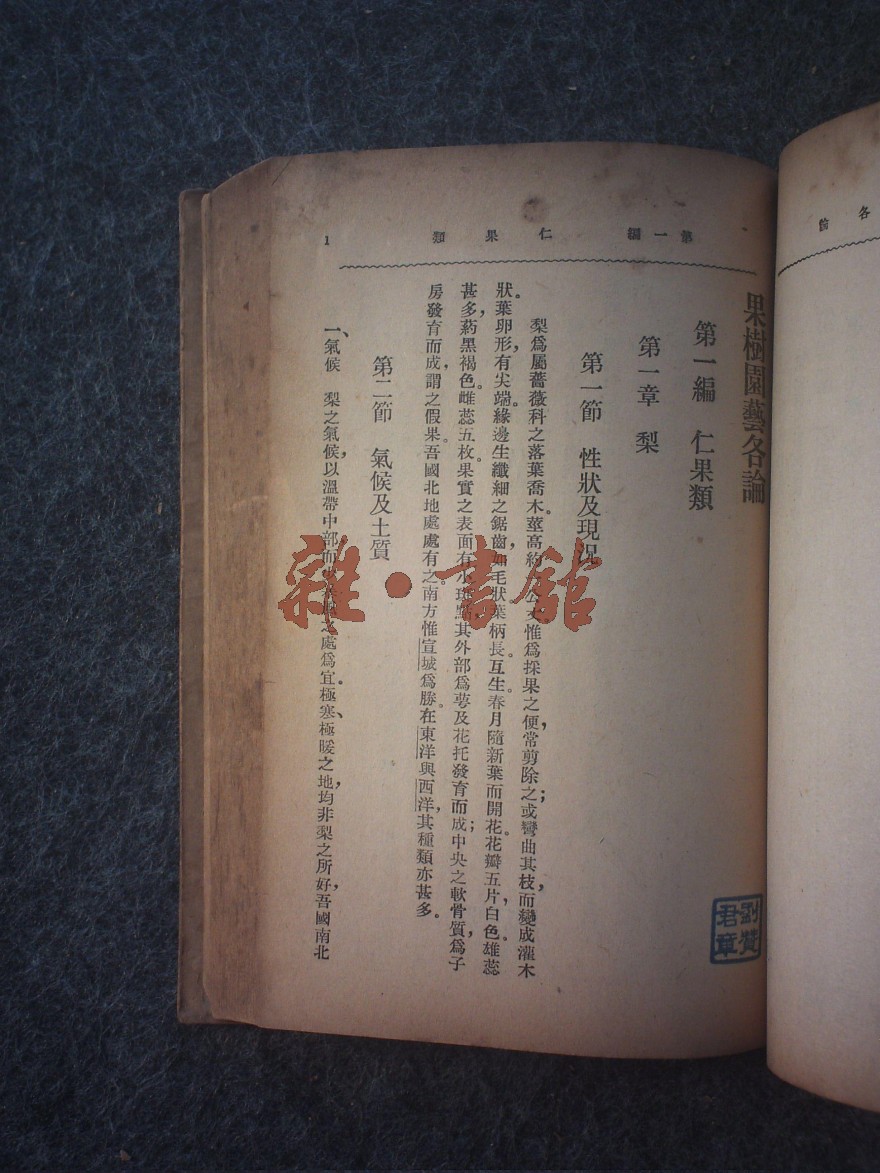 第一編　仁果類　1
果樹園藝各論
第一編　仁果類
第一章　梨
第一節　性狀及現況
梨爲屬薔薇科之落葉喬木。莖高約 惟爲採果之便，常剪除之；或彎曲其枝，而變成灌木
狀。葉卵形，有尖端，緣邊生纖細之鋸齒，如毛狀，葉柄長。互生。春月隨新葉而開花。花瓣五片，白色。雄蕊
甚多，葯黑褐色。雌蕊五枚。果實之表面有小斑點，其外部爲萼及花托發育而成；中央之軟骨質，爲子
房發育而成，謂之假果。吾國北地處處有之。南方惟宣城爲勝。在東洋與西洋，其種類亦甚多。
第二節　氣候及土質
一、氣候　梨之氣候，以溫帶中部而 之處爲宜。極寒、極暖之地，均非梨之所好，吾國南北
各
劉贊君章
雜·書館